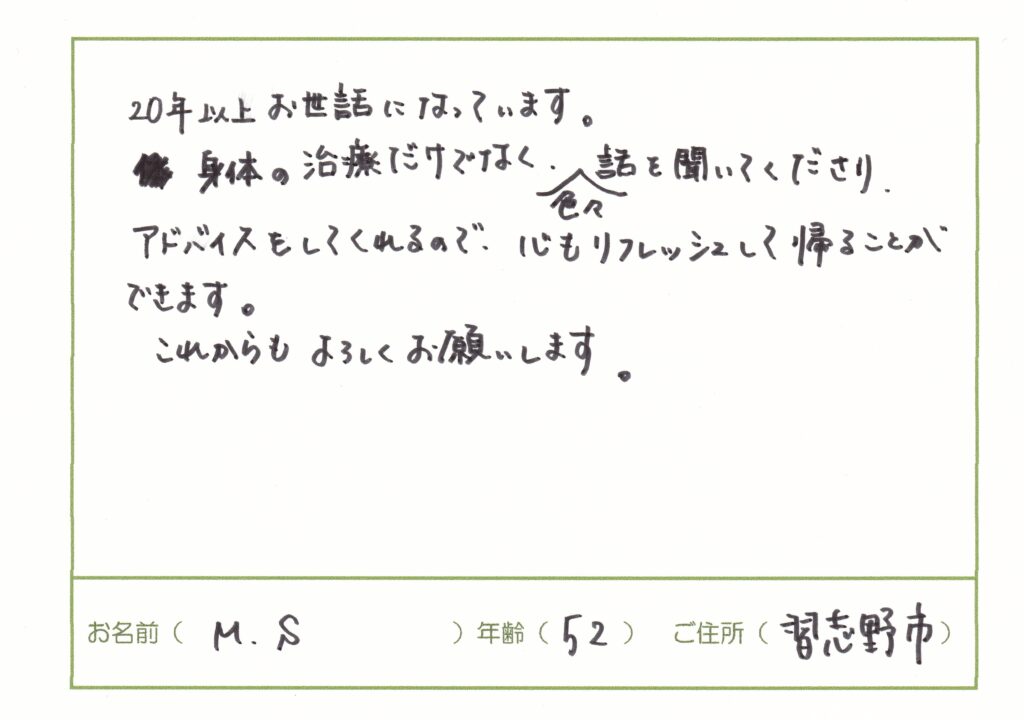 20年以上お世話になっています。
身体の治療だけでなく、色々話を聞いてくださり、
アドバイスをしてくれるので、心もリフレッシュして帰ることが
できます。
これからもよろしくお願いします。
お名前（ M.S ）年齢（ 52 ） ご住所（ 習志野市 ）